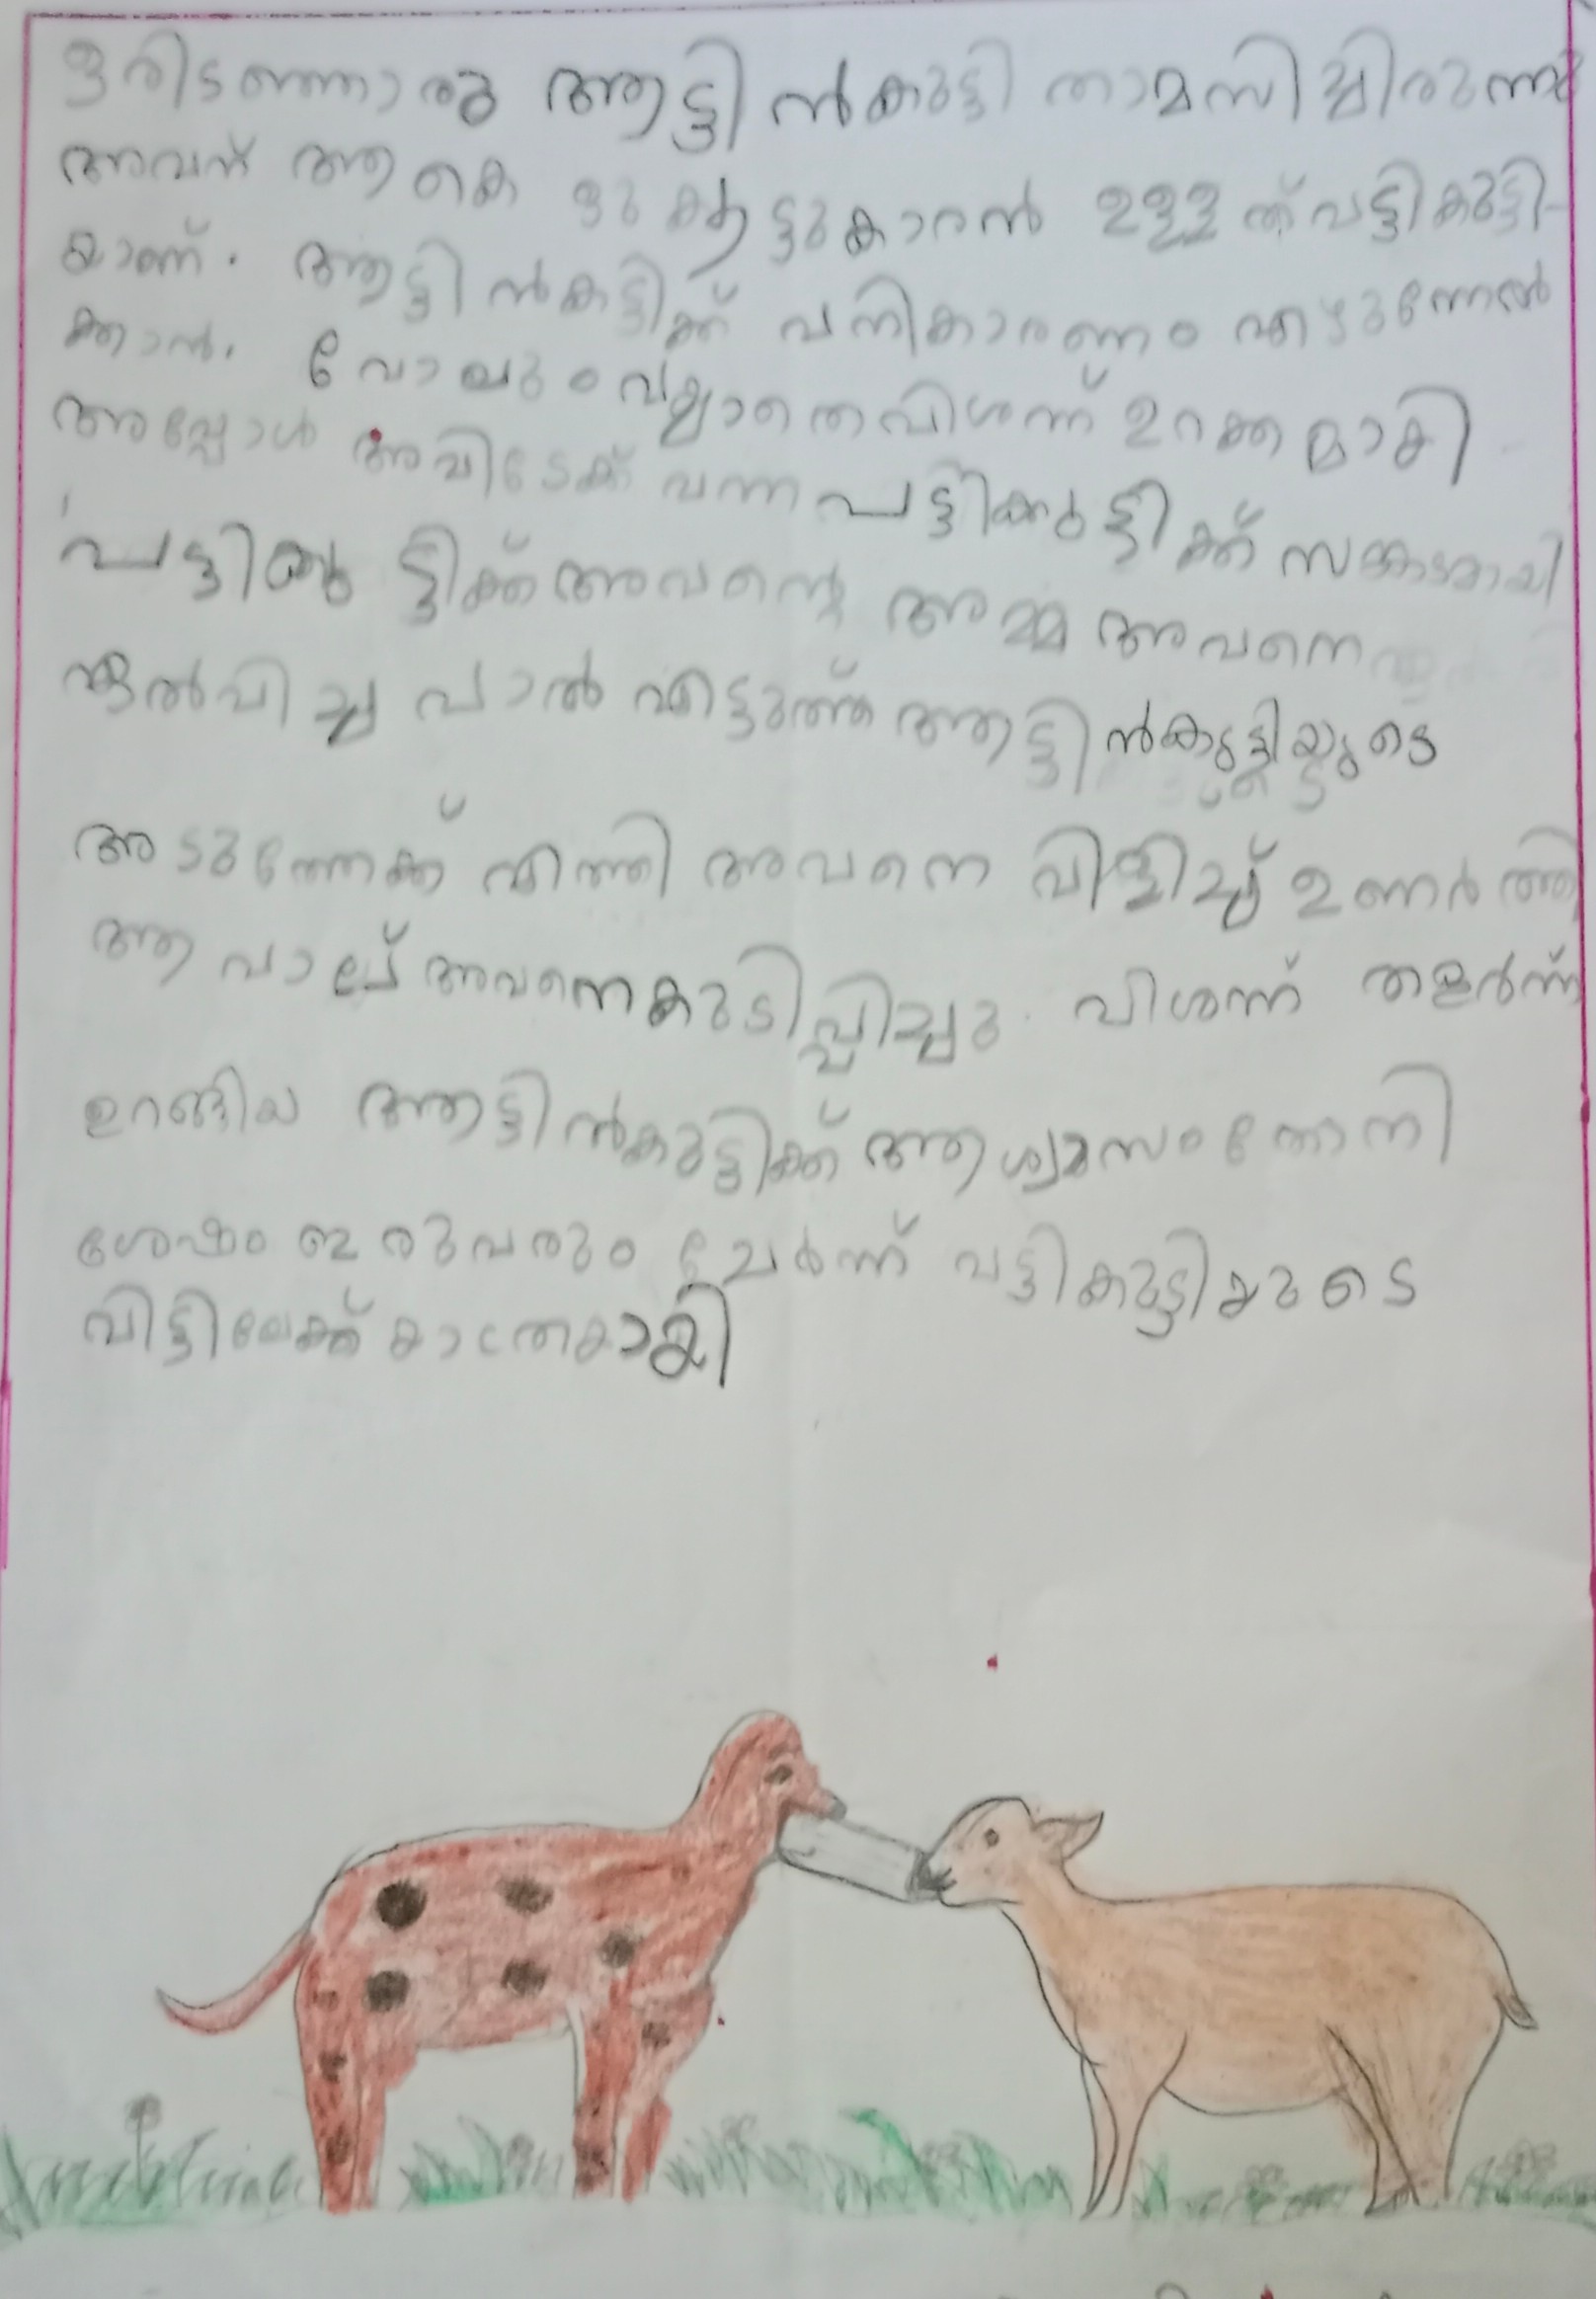 ഒരിടഞ്ഞൊരു ആട്ടിൻകുട്ടി താമസിച്ചിരുന്നു
അവന് ആകെ ഒരു കൂട്ടുകാരൻ ഉള്ളത് പട്ടികുട്ടി-
യാണ്. ആട്ടിൻകുട്ടിക്ക് പനികാരണം എഴുന്നേൽ
ക്കാൻ. പോലും വയ്യാതെ വിശന്ന് ഉറക്കമായി
അപ്പോൾ അവിടേക്ക് വന്ന പട്ടിക്കുട്ടിക്ക് സങ്കടമായി
പട്ടിക്കുട്ടിക്ക് അവന്റെ അമ്മ അവനെ
ഏൽപിച്ച പാൽ എടുത്ത് ആട്ടിൻകുട്ടിയുടെ
അടുത്തേക്ക് എത്തി അവനെ വിളിച്ച് ഉണർത്തി
ആ പാല് അവനെ കുടിപ്പിച്ചു. വിശന്ന് തളർന്ന്
ഉറങ്ങിയ ആട്ടിൻകുട്ടിക്ക് ആശ്വാസം തോനി
ശേഷം ഇരുവരും ചേർന്ന് പട്ടികുട്ടിയുടെ
വിട്ടിലേക്ക് യാത്രയായി